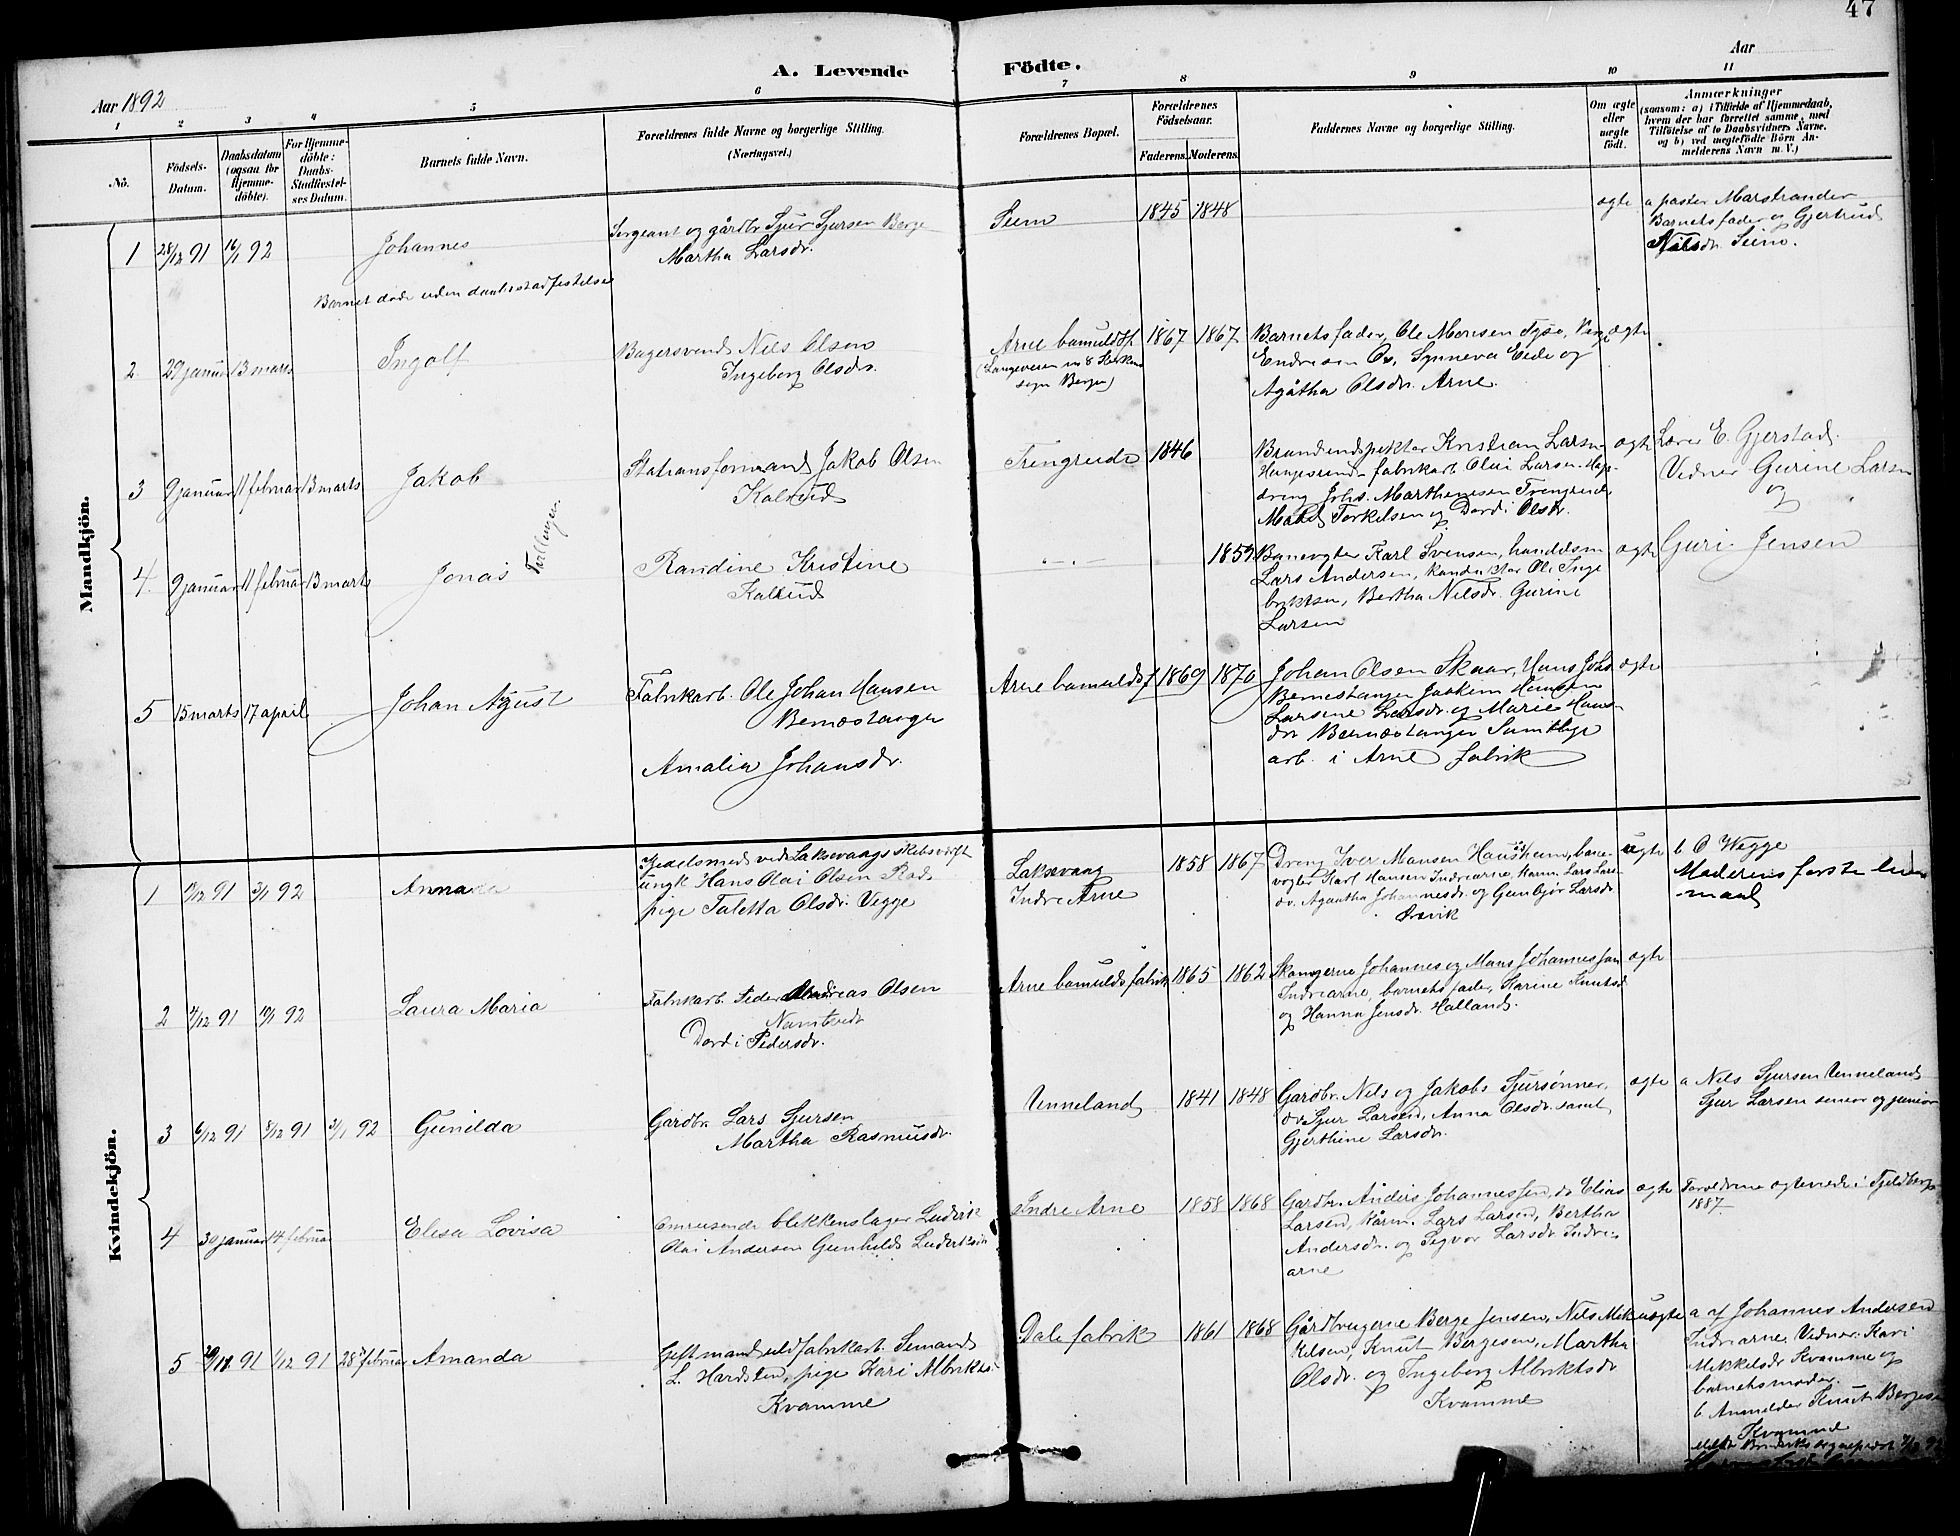 47
A. Levende Födte.
Aar 1892
Aar
1 2 3 4 5 6 7 8 9 10 11
No.
Födsels-
Datum.
Daabsdatum
(ogsaa for
Hjemme-
döbte).
For Hjemme-
döbte:
Daabs-
Stadfæstel-
ses Datum.
Barnets fulde Navn.
Forældrenes fulde Navne og borgerlige Stilling.
(Næringsvei.)
Forældrenes Bopæl.
Forældrenes
Födselsaar.
Faderens. Moderens.
Faddernes Navne og borgerlige Stilling.
Om ægte
eller
uægte
født.
Anmærkninger
(saasom: a) i Tilfælde af Hjemmedaab,
hvem der har forrettet samme, med
Tilföielse af to Daabsvidners Navne,
og b) ved uægtefödte Börn An-
melderens Navn m. V.)
Mandkjön.
1 28/12 91 16/1 92
Johannes
Barnet døde uden daabsstadfestelse
Sergeant og gårdbr. Sjur Sjursen Berge
Martha Larsdr.
Seim
1845 1848
ægte
a pastor Marstrander
Barnets fader og Gjertrud
Nilsdr. Seim.
2 29 januar 13 marts
Ingolf
Bagersvend Nils Olsen
Ingeborg Olsdr.
Arne bomuldsf.
sogn Bergen)
1867 1867
Barnets fader, Ole Monsen Tyse,
Endresen Synneva Eide og
Agåtha Olsdr. Arne.
ægte
3 9 januar 11 februar 13 marts
Jakob
Tvillinger
Stationsformand Jakob Olsen
Kalrud
Trengereide
1846
Kristian Larsen
fabrikarb. Olai Larsen
dreng Johs. Marthinusen Trengreide
Torkelsen og Dordi Olsdr.
ægte
Lærer E. Gjerstad.
Vidner Gurine Larsen
og
4 9 januar 11 februar 13 marts
Jonas
Randine Kristine
Kalrud
- . -
1859
Banevogter Karl Svensen, handelsm
Lars Andersen, konduktør Ole Inge
briktsen, Bertha Nilsdr. Gurine
Larsen
ægte
Guri Jensen
5 15 marts 17 april
Johan Agust
Fabrikarb. Ole Johan Hansen
Bernestangen
Amalia Johansdr.
Arne bomuldsf
1869 1870
Johan Olsen Skaar, Hans Johs
Bernestangen Joakim Hansen
Larsine Larsdr. og Marie Hans-
dr Bernestangen Samtlige
arb. i Arne fabrik
ægte
Kvindekjön.
1 91 3/1 92
Anna
ved Laksevaags skibsværft
ungk Hans Olai Olsen
pige Taletta Olsdr. Vegge
Laksevaag
Indre Arne
1858 1867
Dreng Iver Monsen Haukheim, bane-
vogter Karl Hansen Indrearne, Lars Lars-
Agaatha Johannesdr. og Gunbjør Larsdr
uægte
b O Vegge
Moderens første leier-
maal
2 /12 91 10/1 92
Laura Maria
Fabrikarb. Peder Andreas Olsen
Dordi Pedersdr.
Arne bomulds fabrik
1865 1862
Johannes og Mons Johannessen
Indrearne, barnets fader, Karine Knutsd
og Hanna Jensdr. Halland.
ægte
3 6/12 91 8/12 91 3/1 92
Gunilda
Gårdbr. Lars Sjursen
Martha Rasmusdr.
Unneland
1841 1848
Gårdbr. Nils og Jakobs Sjursønner,
do Sjur Larsen, Anna Olsdr. samt
Gjerthine Larsdr.
ægte
a Nils Sjursen Unneland
Sjur Larsen senior og junior
4 30 januar 14 februar
Elesa Lovisa
Omreisende blikkenslager Ludvik
Olai Andersen Gunhild Ludviksdr
Indre Arne
1858 1868
Gårdbr. Anders Johannessen, do Elias
Larsen, Lars Larsen, Bertha
Andersdr. og Sigvor Larsdr Indre-
arne
ægte
Forældrene ægteviede i Fjeldberg
1887
5 91 1/12 91 28 februar
Amanda
Gift mand fabrikarb. Semand
L. Hardsten, pige Kari Albrikts-
Kvamme
Dale fabrik
1861 1868
Gårdbrugerne Berge Jensen, Nils Mik
kelsen, Knut Bergesen, Martha
Olsdr. og Ingeborg Albriktsdr
Kvamme
uægte
a af Johannes Andersen
Indrearne. Vidner: Kari
Mikkelsdr Kvamme og
barnets moder.
b Anmelder Knut Bergesen
Kvamme